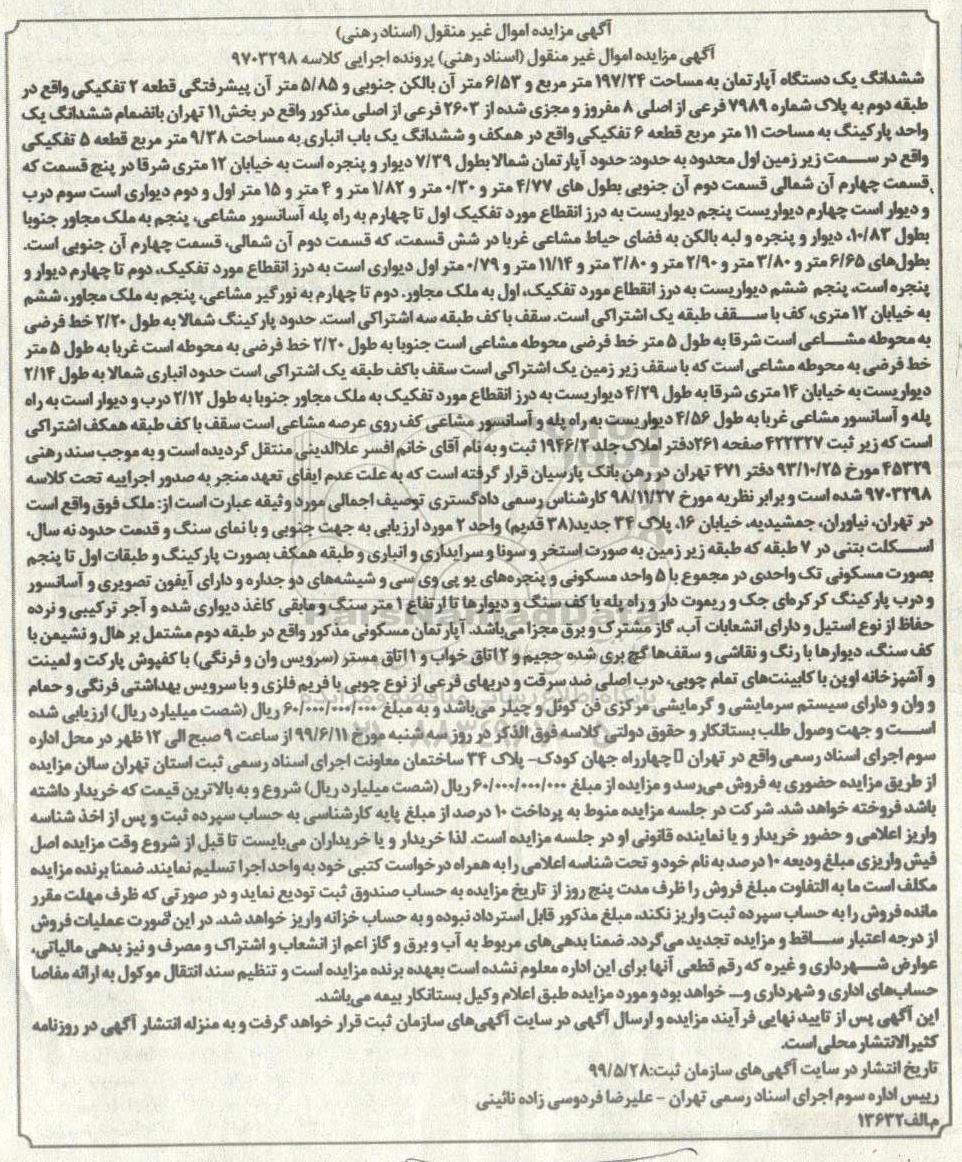 آگهی مزایده اموال غیر منقول (اسناد رهنی)
آگهی مزایده اموال غیر منقول (اسناد رهنی) پرونده اجرایی کلاسه ۹۷۰۳۲۹۸
ششدانگ یک دستگاه آپارتمان به مساحت ۱۹۷/۲۴ متر مربع و ۶/۵۳ متر آن بالکن جنوبی و ۵/۸۵ متر آن پیشرفتگی قطعه ۲ تفکیکی واقع در
طبقه دوم به پلاک شماره ۷۹۸۹ فرعی از اصلی ۸ مفروز و مجزی شده از ۲۶۰۳ فرعی از اصلی مذکور واقع در بخش۱۱ تهران بانضمام ششدانگ یک
واحد پارکینگ به مساحت ۱۱ متر مربع قطعه ۶ تفکیکی واقع در همکف و ششدانگ یک باب انباری به مساحت ۹/۳۸ متر مربع قطعه ۵ تفکیکی
واقع در سـمت زیر زمین اول محدود به حدود: حدود آپارتمان شمالا بطول ۷/۳۹ دیوار و پنجره است به خیابان ۱۲ متری شرقا در پنج قسمت که
قسمت چهارم آن شمالی قسمت دوم آن جنوبی بطول های ۴/۷۷ متر و ۰/۳۰ متر و ۱/۸۲ متر و ۴ متر و ۱۵ متر اول و دوم دیواری است سوم درب
و دیوار است چهارم دیواریست پنجم دیواریست به درز انقطاع مورد تفکیک اول تا چهارم به راه پله آسانسور مشاعی، پنجم به ملک مجاور جنوبا
بطول ۱۰/۸۳، دیوار و پنجره و لبه بالکن به فضای حیاط مشاعی غربا در شش قسمت، که قسمت دوم آن شمالی، قسمت چهارم آن جنوبی است.
بطول‌های ۶/۶۵ متر و ۳/۸۰ متر و ۲/۹۰ متر و ۳/۸۰ متر و ۱۱/۱۴ متر و ۰/۷۹ متر اول دیواری است به درز انقطاع مورد تفکیک، دوم تا چهارم دیوار و
پنجره است، پنجم ششم دیواریست به درز انقطاع مورد تفکیک، اول به ملک مجاور. دوم تا چهارم به نورگیر مشاعی، پنجم به ملک مجاور، ششم
به خیابان ۱۲ متری، کف با سـقف طبقه یک اشتراکی است. سقف با کف طبقه سه اشتراکی است. حدود پارکینگ شمالا به طول ۲/۲۰ خط فرضی
به محوطه مشـاعی است شرقا به طول ۵ متر خط فرضی محوطه مشاعی است جنوبا به طول ۲/۲۰ خط فرضی به محوطه است غربا به طول ۵ متر
خط فرضی به محوطه مشاعی است که با سقف زیر زمین یک اشتراکی است سقف باکف طبقه یک اشتراکی است حدود انباری شمالا به طول ۲/۱۴
دیواریست به خیابان ۱۴ متری شرقا به طول ۴/۲۹ دیواریست به درز انقطاع مورد تفکیک به ملک مجاور جنوبا به طول ۲/۱۲ درب و دیوار است به راه
پله و آسانسور مشاعی غربا به طول ۴/۵۶ دیواریست به راه پله و آسانسور مشاعی کف روی عرصه مشاعی است سقف با کف طبقه همکف اشتراکی
است که زیر ثبت ۴۲۲۳۲۷ صفحه ۲۶۱دفتر املاک جلد ۱۹۴۶/۲ ثبت و به نام آقای خانم افسر علاالدینی منتقل گردیده است و به موجب سند رهنی
۴۵۳۲۹ مورخ ۹۳/۱۰/۲۵ دفتر ۴۷۱ تهران در رهن بانک پارسیان قرار گرفته است که به علت عدم ایفای تعهد منجر به صدور اجراییه تحت کلاسه
۹۷۰۳۲۹۸ شده است و برابر نظریه مورخ ۹۸/۱۱/۲۷ کارشناس رسمی دادگستری توصیف اجمالی مورد وثیقه عبارت است از: ملک فوق واقع است
در تهران، نیاوران، جمشیدیه، خیابان ۱۶، پلاک ۳۴ جدید(۳۸ قدیم) واحد ۲ مورد ارزیابی به جهت جنوبی و با نمای سنگ و قدمت حدود نه سال،
اسـکلت بتنی در ۷ طبقه که طبقه زیر زمین به صورت استخر و سونا و سرایداری و انباری و طبقه همکف بصورت پارکینگ و طبقات اول تا پنجم
بصورت مسکونی تک واحدی در مجموع با ۵ واحد مسکونی و پنجره‌های یو پی وی سی و شیشه‌های دو جداره و دارای آیفون تصویری و آسانسور
و درب پارکینگ کرکره‌ای جک و ریموت دار و راه پله با کف سنگ و دیوارها تا ارتفاع ۱ متر سنگ و مابقی کاغذ دیواری شده و آجر ترکیبی و نرده
حفاظ از نوع استیل و دارای انشعابات آب، گاز مشترک و برق مجزا می‌باشد. آپارتمان مسکونی مذکور واقع در طبقه دوم مشتمل بر هال و نشیمن با
کف سنگ، دیوارها با رنگ و نقاشی و سقف‌ها گچ بری شده حجیم و ۲ اتاق خواب و ۱ اتاق مستر (سرویس وان و فرنگی) با کفپوش پارکت و لمینت
و آشپزخانه اوپن با کابینت‌های تمام چوبی، درب اصلی ضد سرقت و دربهای فرعی از نوع چوبی با فریم فلزی و با سرویس بهداشتی فرنگی و حمام
و وان و دارای سیستم سرمایشی و گرمایشی مرکزی فن کوئل و چیلر می‌باشد و به مبلغ ۶۰/۰۰۰/۰۰۰/۰۰۰ ریال (شصت میلیارد ریال) ارزیابی شده
اسـت و جهت وصول طلب بستانکار و حقوق دولتی کلاسه فوق الذکر در روز سه شنبه مورخ ۹۹/۶/۱۱ از ساعت ۹ صبح الی ۱۲ ظهر در محل اداره
سوم اجرای اسناد رسمی واقع در تهران چهارراه جهان کودک- پلاک ۳۴ ساختمان معاونت اجرای اسناد رسمی ثبت استان تهران سالن مزایده
از طریق مزایده حضوری به فروش می‌رسد و مزایده از مبلغ ۶۰/۰۰۰/۰۰۰/۰۰۰ریال (شصت میلیارد ریال) شروع و به بالاترین قیمت که خریدار داشته
باشد فروخته خواهد شد. شرکت در جلسه مزایده منوط به پرداخت ۱۰ درصد از مبلغ پایه کارشناسی به حساب سپرده ثبت و پس از اخذ شناسه
واریز اعلامی و حضور خریدار و یا نماینده قانونی او در جلسه مزایده است. لذا خریدار و یا خریداران می‌بایست تا قبل از شروع وقت مزایده اصل
فیش واریزی مبلغ ودیعه ۱۰ درصد به نام خود و تحت شناسه اعلامی را به همراه درخواست کتبی خود به واحد اجرا تسلیم نمایند. ضمنا برنده مزایده
مکلف است ما به التفاوت مبلغ فروش را ظرف مدت پنج روز از تاریخ مزایده به حساب صندوق ثبت تودیع نماید و در صورتی که ظرف مهلت مقرر
مانده فروش را به حساب سپرده ثبت واریز نکند، مبلغ مذکور قابل استرداد نبوده و به حساب خزانه واریز خواهد شد. در این صورت عملیات فروش
از درجه اعتبار سـاقط و مزایده تجدید می‌گردد. ضمنا بدهی‌های مربوط به آب و برق و گاز اعم از انشعاب و اشتراک و مصرف و نیز بدهی مالیاتی،
عوارض شـهرداری و غیره که رقم قطعی آنها برای این اداره معلوم نشده است بعهده برنده مزایده است و تنظیم سند انتقال موکول به ارائه مفاصا
حساب‌های اداری و شهرداری و... خواهد بود و مورد مزایده طبق اعلام وکیل بستانکار بیمه می‌باشد.
این آگهی پس از تایید نهایی فرآیند مزایده و ارسال آگهی در سایت آگهی‌های سازمان ثبت قرار خواهد گرفت و به منزله انتشار آگهی در روزنامه
کثیرالانتشار محلی است.
تاریخ انتشار در سایت آگهی‌های سازمان ثبت:۹۹/۵/۲۸
رییس اداره سوم اجرای اسناد رسمی تهران - علیرضا فردوسی زاده نائینی
م.الف۱۳۶۳۲